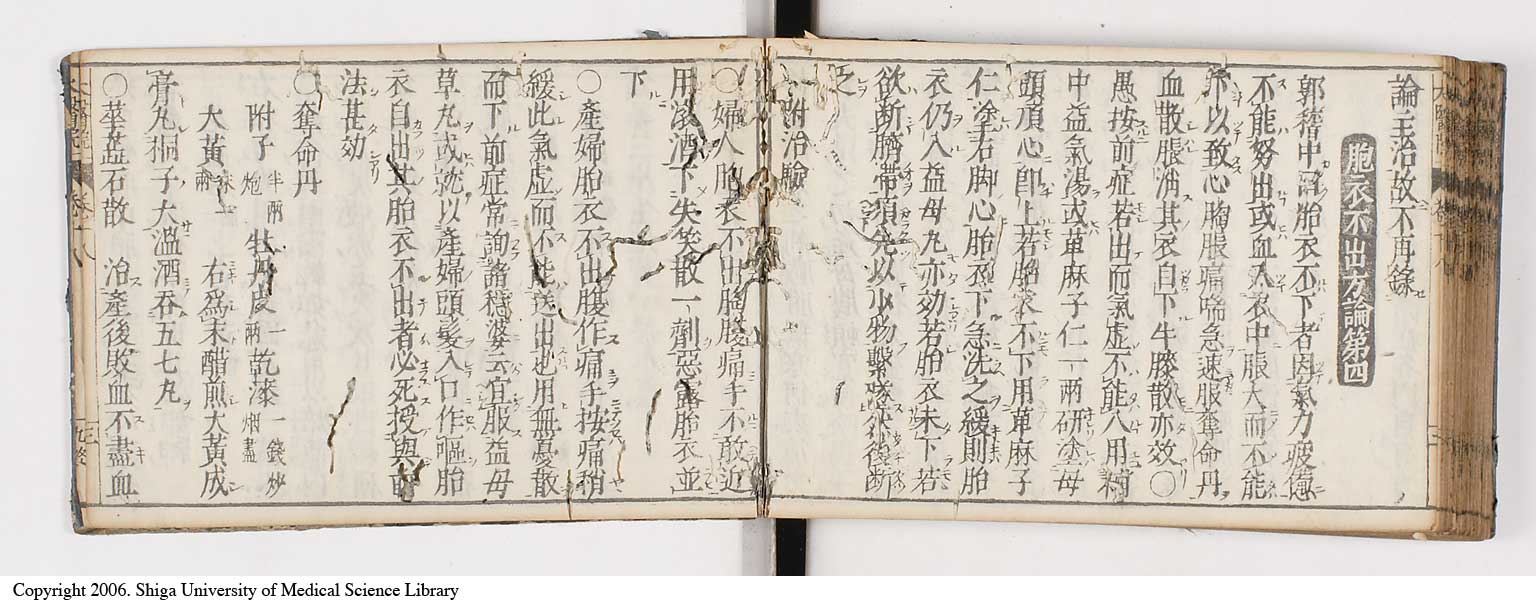 論主治故不再録
胞衣不出方論第四
郭稽中謂胎衣不下者因氣力疲憊
不能努出或血入衣中脹大而不能
下以致心胸脹痛喘急速服奪命丹
血散脹消其衣自下牛膝散亦效〇
愚按前症若出而氣虚不能入用補
中益氣湯或萆麻子仁一兩研塗母
頭頂心卽上若胎衣不下用萆麻子
仁塗右脚心胎衣下急洗之緩則胎
衣仍入益母丸亦効若胎衣未下若
欲断臍帶須先以少物繫墜然後断
之
附治驗
〇婦人胎衣不出胸腹痛手不敢近
用滚酒下失笑散一劑惡露胎衣並
下
〇產婦胎衣不出腹作痛手按痛稍
緩此氣虚而不能送出也用無憂散
而下前症常詢諸穩婆云宜服益母
草丸或就以產婦頭髮入口作嘔胎
衣自出其胎衣不出者必死授與前
法甚効
〇奪命丹
附子半兩炮 牡丹皮一兩 乾漆一錢炒烟盡
大黃末一兩 右爲末醋煎大黃成
膏丸桐子大溫酒吞五七丸
〇華蕋石散 治產後敗血不盡血
Copyright 2006. Shiga University of Medical Science Library